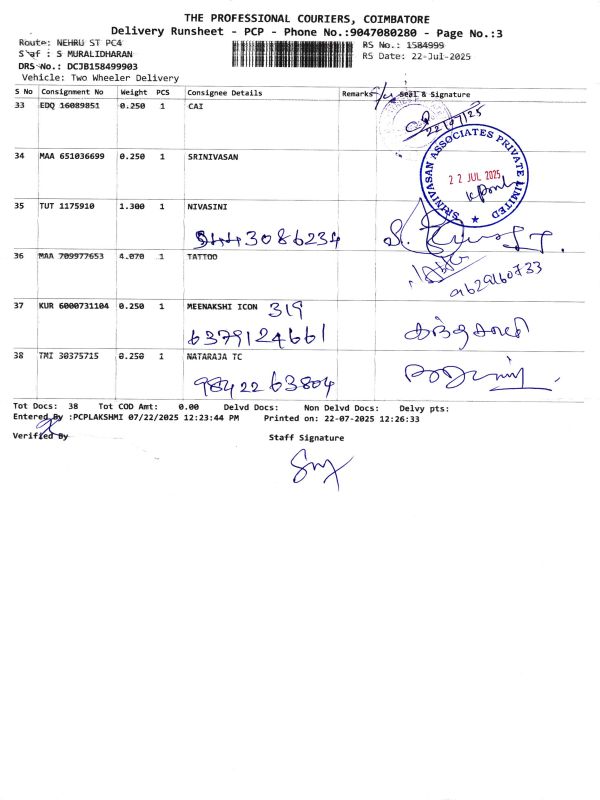 THE PROFESSIONAL COURIERS, COIMBATORE
Delivery Runsheet - PCP - Phone No.:9047080280 - Page No.:3
Route: NEHRU ST PC4 RS No.: 1584999
Staf : S MURALIDHARAN RS Date: 22-Jul-2025
DRS No.: DCJB158499903
Vehicle: Two Wheeler Delivery
S No Consignment No Weight PCS Consignee Details Remarks Seal & Signature
33 EDQ 16089851 0.250 1 CAI
22/07/25
34 MAA 651036699 0.250 1 SRINIVASAN
SRINIVASAN ASSOCIATES PRIVATE LIMITED
22 JUL 2025
35 TUT 1175910 1.300 1 NIVASINI
36 MAA 709977653 4.070 1 TATTOO
9629160733
37 KUR 6000731104 0.250 1 MEENAKSHI ICON 319
6379124661
38 TMI 30375715 0.250 1 NATARAJA TC
9842263804
Tot Docs: 38 Tot COD Amt: 0.00 Delvd Docs: Non Delvd Docs: Delvy pts:
Entered By :PCPLAKSHMI 07/22/2025 12:23:44 PM Printed on: 22-07-2025 12:26:33
Verified By Staff Signature